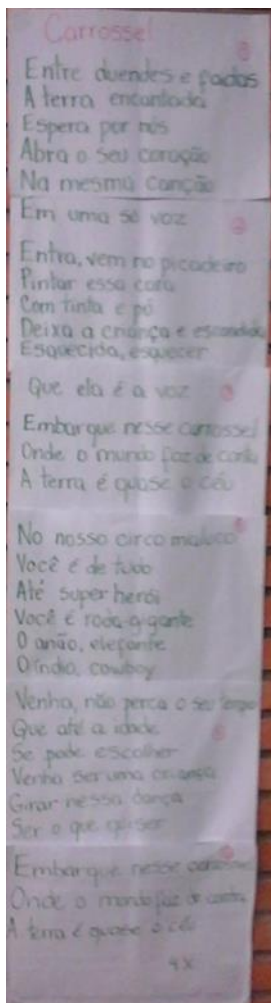 Carrossel
Entre duendes e fadas
A terra encantada
Espera por nós
Abra o seu coração
Na mesma canção
Em uma só voz
Entra, vem no picadeiro
Pintar essa cara
Com tinta e pó
Deixa a criança e escondida
Esquecida, esquecer
Que ela é a voz
Embarque nesse carrossel
Onde o mundo faz de conta
A terra é quase o céu
No nosso circo maluco
Você é de tudo
Até super herói
Você é roda-gigante
O anão, elefante
O índio, cowboy
Venha, não perca o seu tempo
Que até a idade
Se pode escolher
Venha ser uma criança
Girar nessa dança
Ser o que quiser
Embarque nesse carrossel
Onde o mundo faz de conta
A terra é quase o céu
4X